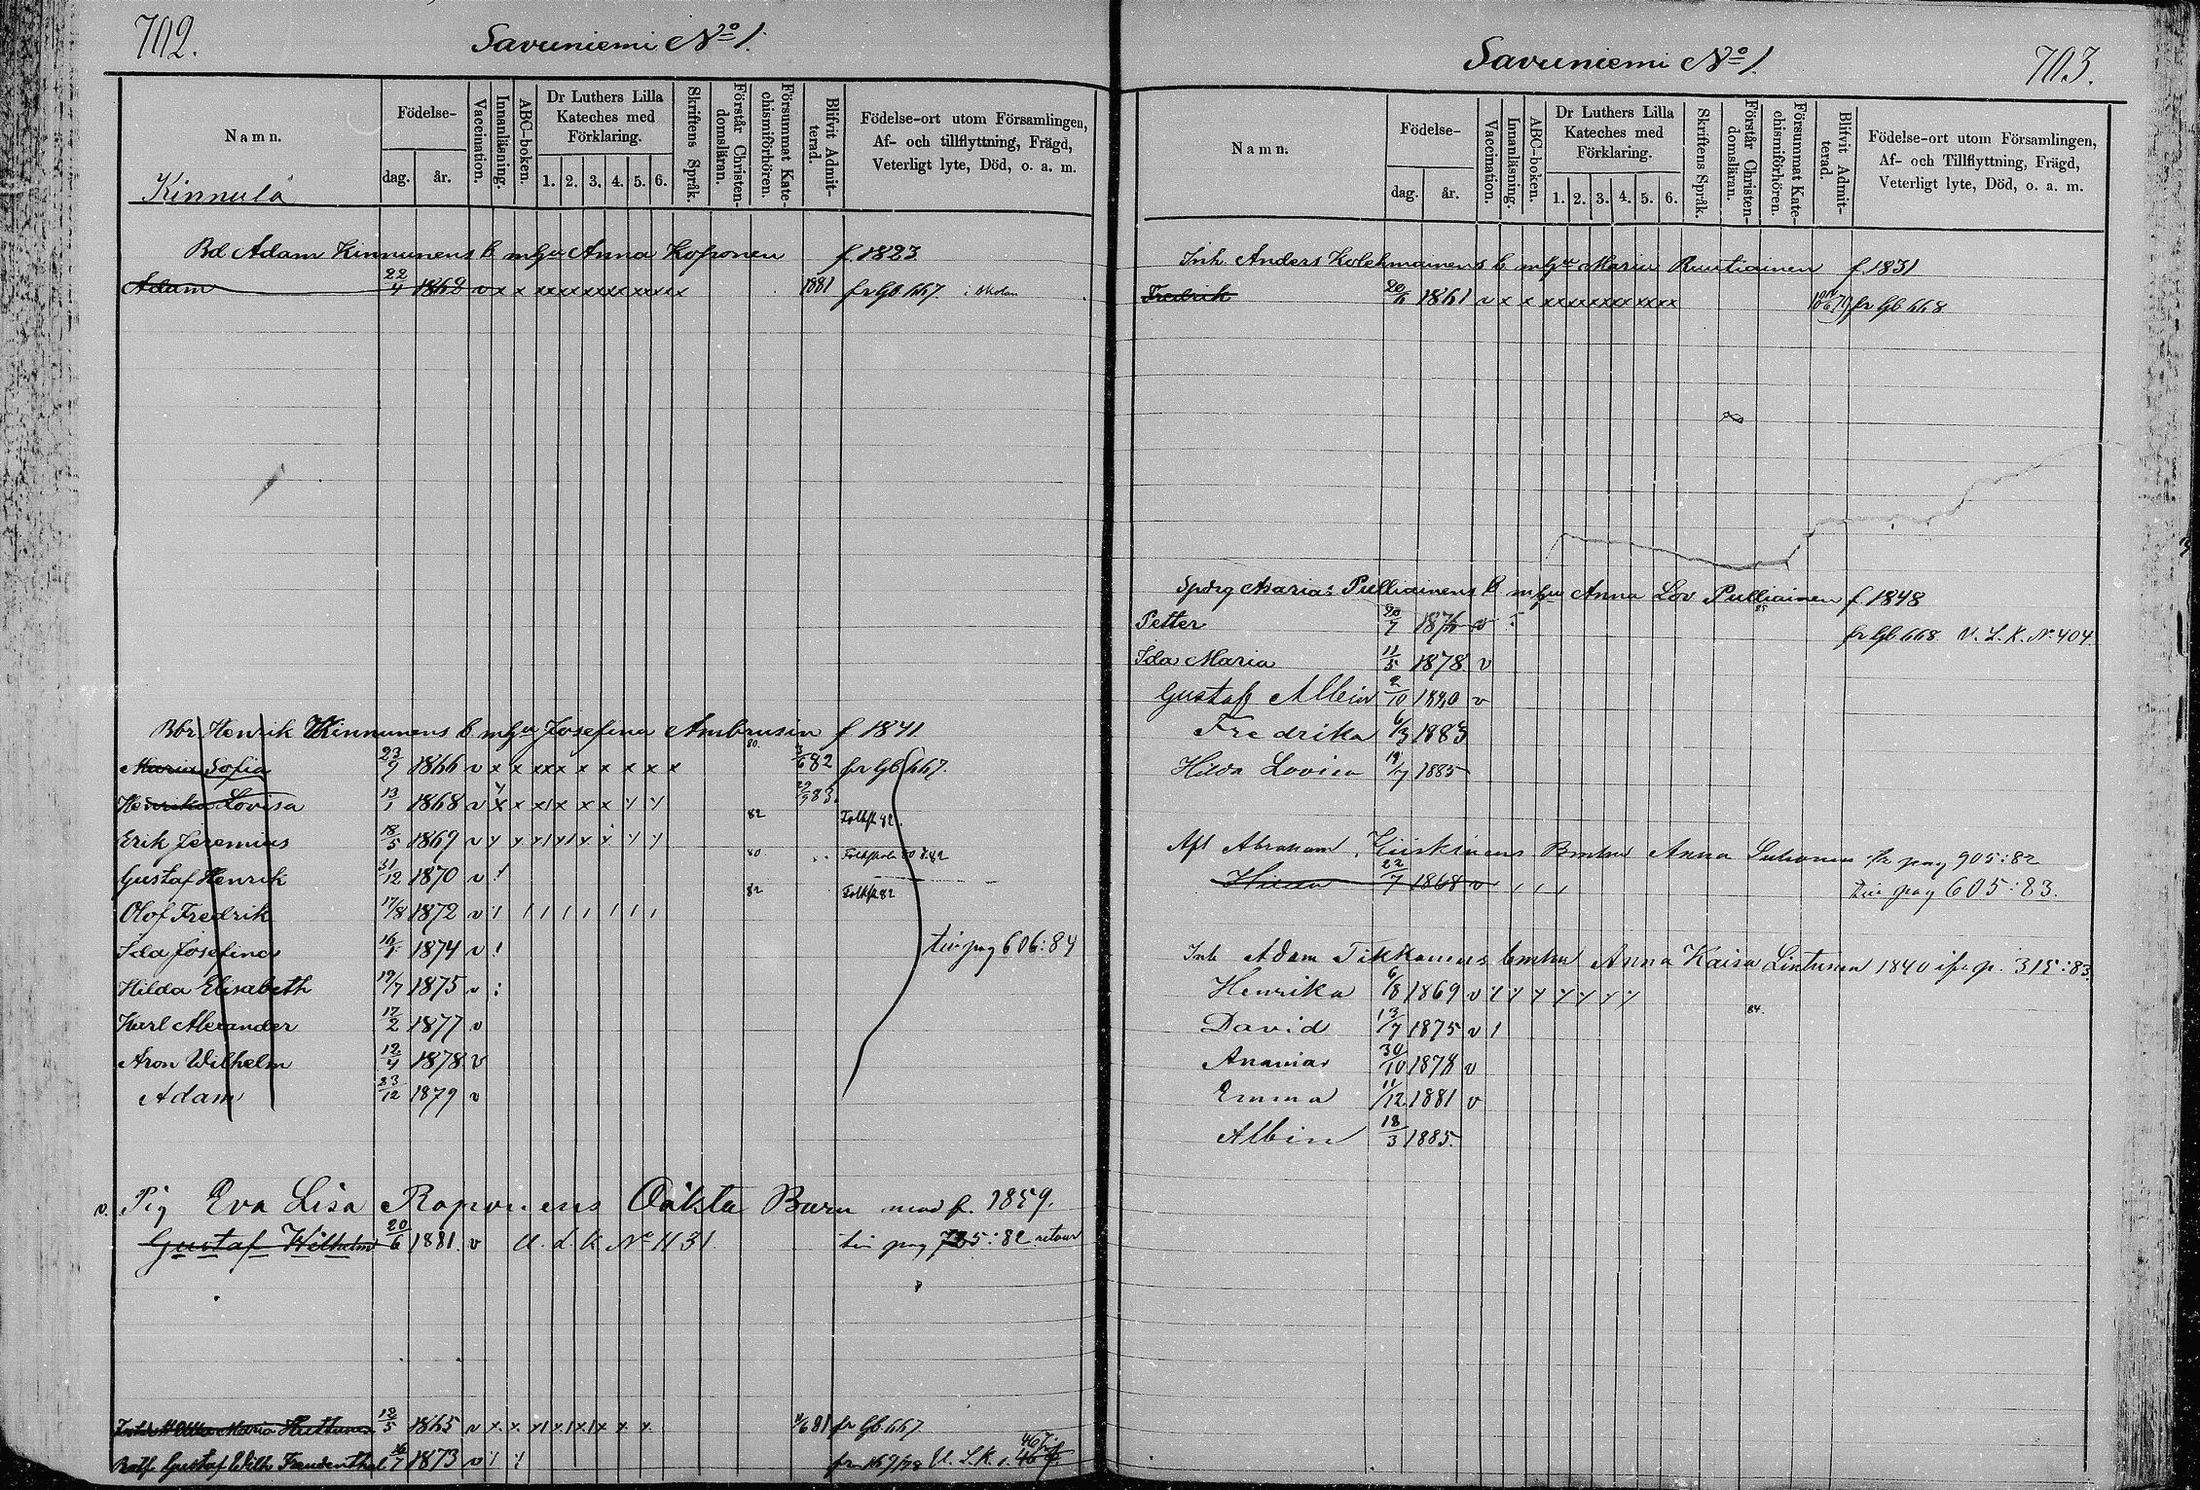 702.
Savuniemi No 1.
Namn.
Födelse-
dag.
år.
Vaccination.
Innanläsning.
ABC-boken.
Dr Luthers Lilla Kateches med Förklaring.
1. 2. 3. 4. 5. 6.
Skriftens Språk.
Förstår Christendomsläran.
Försummat Katechismiförhören.
Blifvit Admitterad.
Födelse-ort utom Församlingen, Af- och tillflyttning, Frägd, Veterligt lyte, Död, o. a. m.
Kinnula
Bd Adam Kinnunens b. m hu Anna Koponen f. 1823
Adam 22/4 1862 v x x xx xx xx xx xx xx x 1881 fr Gb 667. i skolan
Bbr Henrik Kinnunens b. m hu Josefina Ambrusin f 1841
Maria Sofia 23/7 1866 v x x xx x x x x x x 80. 3/6 82 fr Gb 667.
Henrika Lovisa 13/1 1868 v x x x x x x 83.
Erik Jeremias 18/5 1869 v 82 Folksk 82.
Gustaf Henrik 31/12 1870 v 80 Folkskola 80 & 82
Olof Fredrik 17/8 1872 v 82 Folksk 82
Ida Josefina 16/1 1874 v till pag 606:84
Hilda Elisabeth 19/7 1875 v
Karl Alexander 17/2 1877 v
Aron Wilhelm 12/4 1878 v
Adam 23/12 1879 v
v. Pig Eva Lisa Roponens Oäkta Barn mod f. 1859.
Gustaf Wilhelm 20/6 1881. v U. L. K No 1131 till pag 725:82 retour
Maria Huttunen 12/5 1865 v x x x x x x x x 6 81 fr Gb 667
Gustaf Wilh Freudenthal 16/7 1873 v fr 169/78 U. L. K. 467.
703.
Savuniemi No 1.
Namn.
Födelse-
dag.
år.
Vaccination.
Innanläsning.
ABC-boken.
Dr Luthers Lilla Kateches med Förklaring.
1. 2. 3. 4. 5. 6.
Skriftens Språk.
Förstår Christendomsläran.
Försummat Katechismiförhören.
Blifvit Admitterad.
Födelse-ort utom Församlingen, Af- och Tillflyttning, Frägd, Veterligt lyte, Död, o. a. m.
Inh. Anders Kolehmainens b. m hu Maria Ruutiainen f. 1831
Fredrik 20/6 1861 v x x xx xx xx xx xx xx 79 fr Gb 668
Maria Pulliainens b. m hu Anna Lov Pulliainen f. 1848
Petter 20/7 v 85 fr Gb 668. U. L. K. No 404.
Ida Maria 11/5 1878. v
Gustaf Albin 2/10 1880 v
Fredrika 6/3 1883
Hilda Lovisa 1885
Afl Abraham Kiiskinens Bmhu Anna fr pag 905:82
22/7 1868 v till pag 605:83.
Inh Adam Tikkanens bmhu Anna Kaisa Lintunen 1840 ifr p. 315:83
Henrika 6/8 1869 v
David 13/7 1875 v 84.
Ananias 30/10 1878 v
Emma 11/12 1881 v
Albin 18/3 1885.